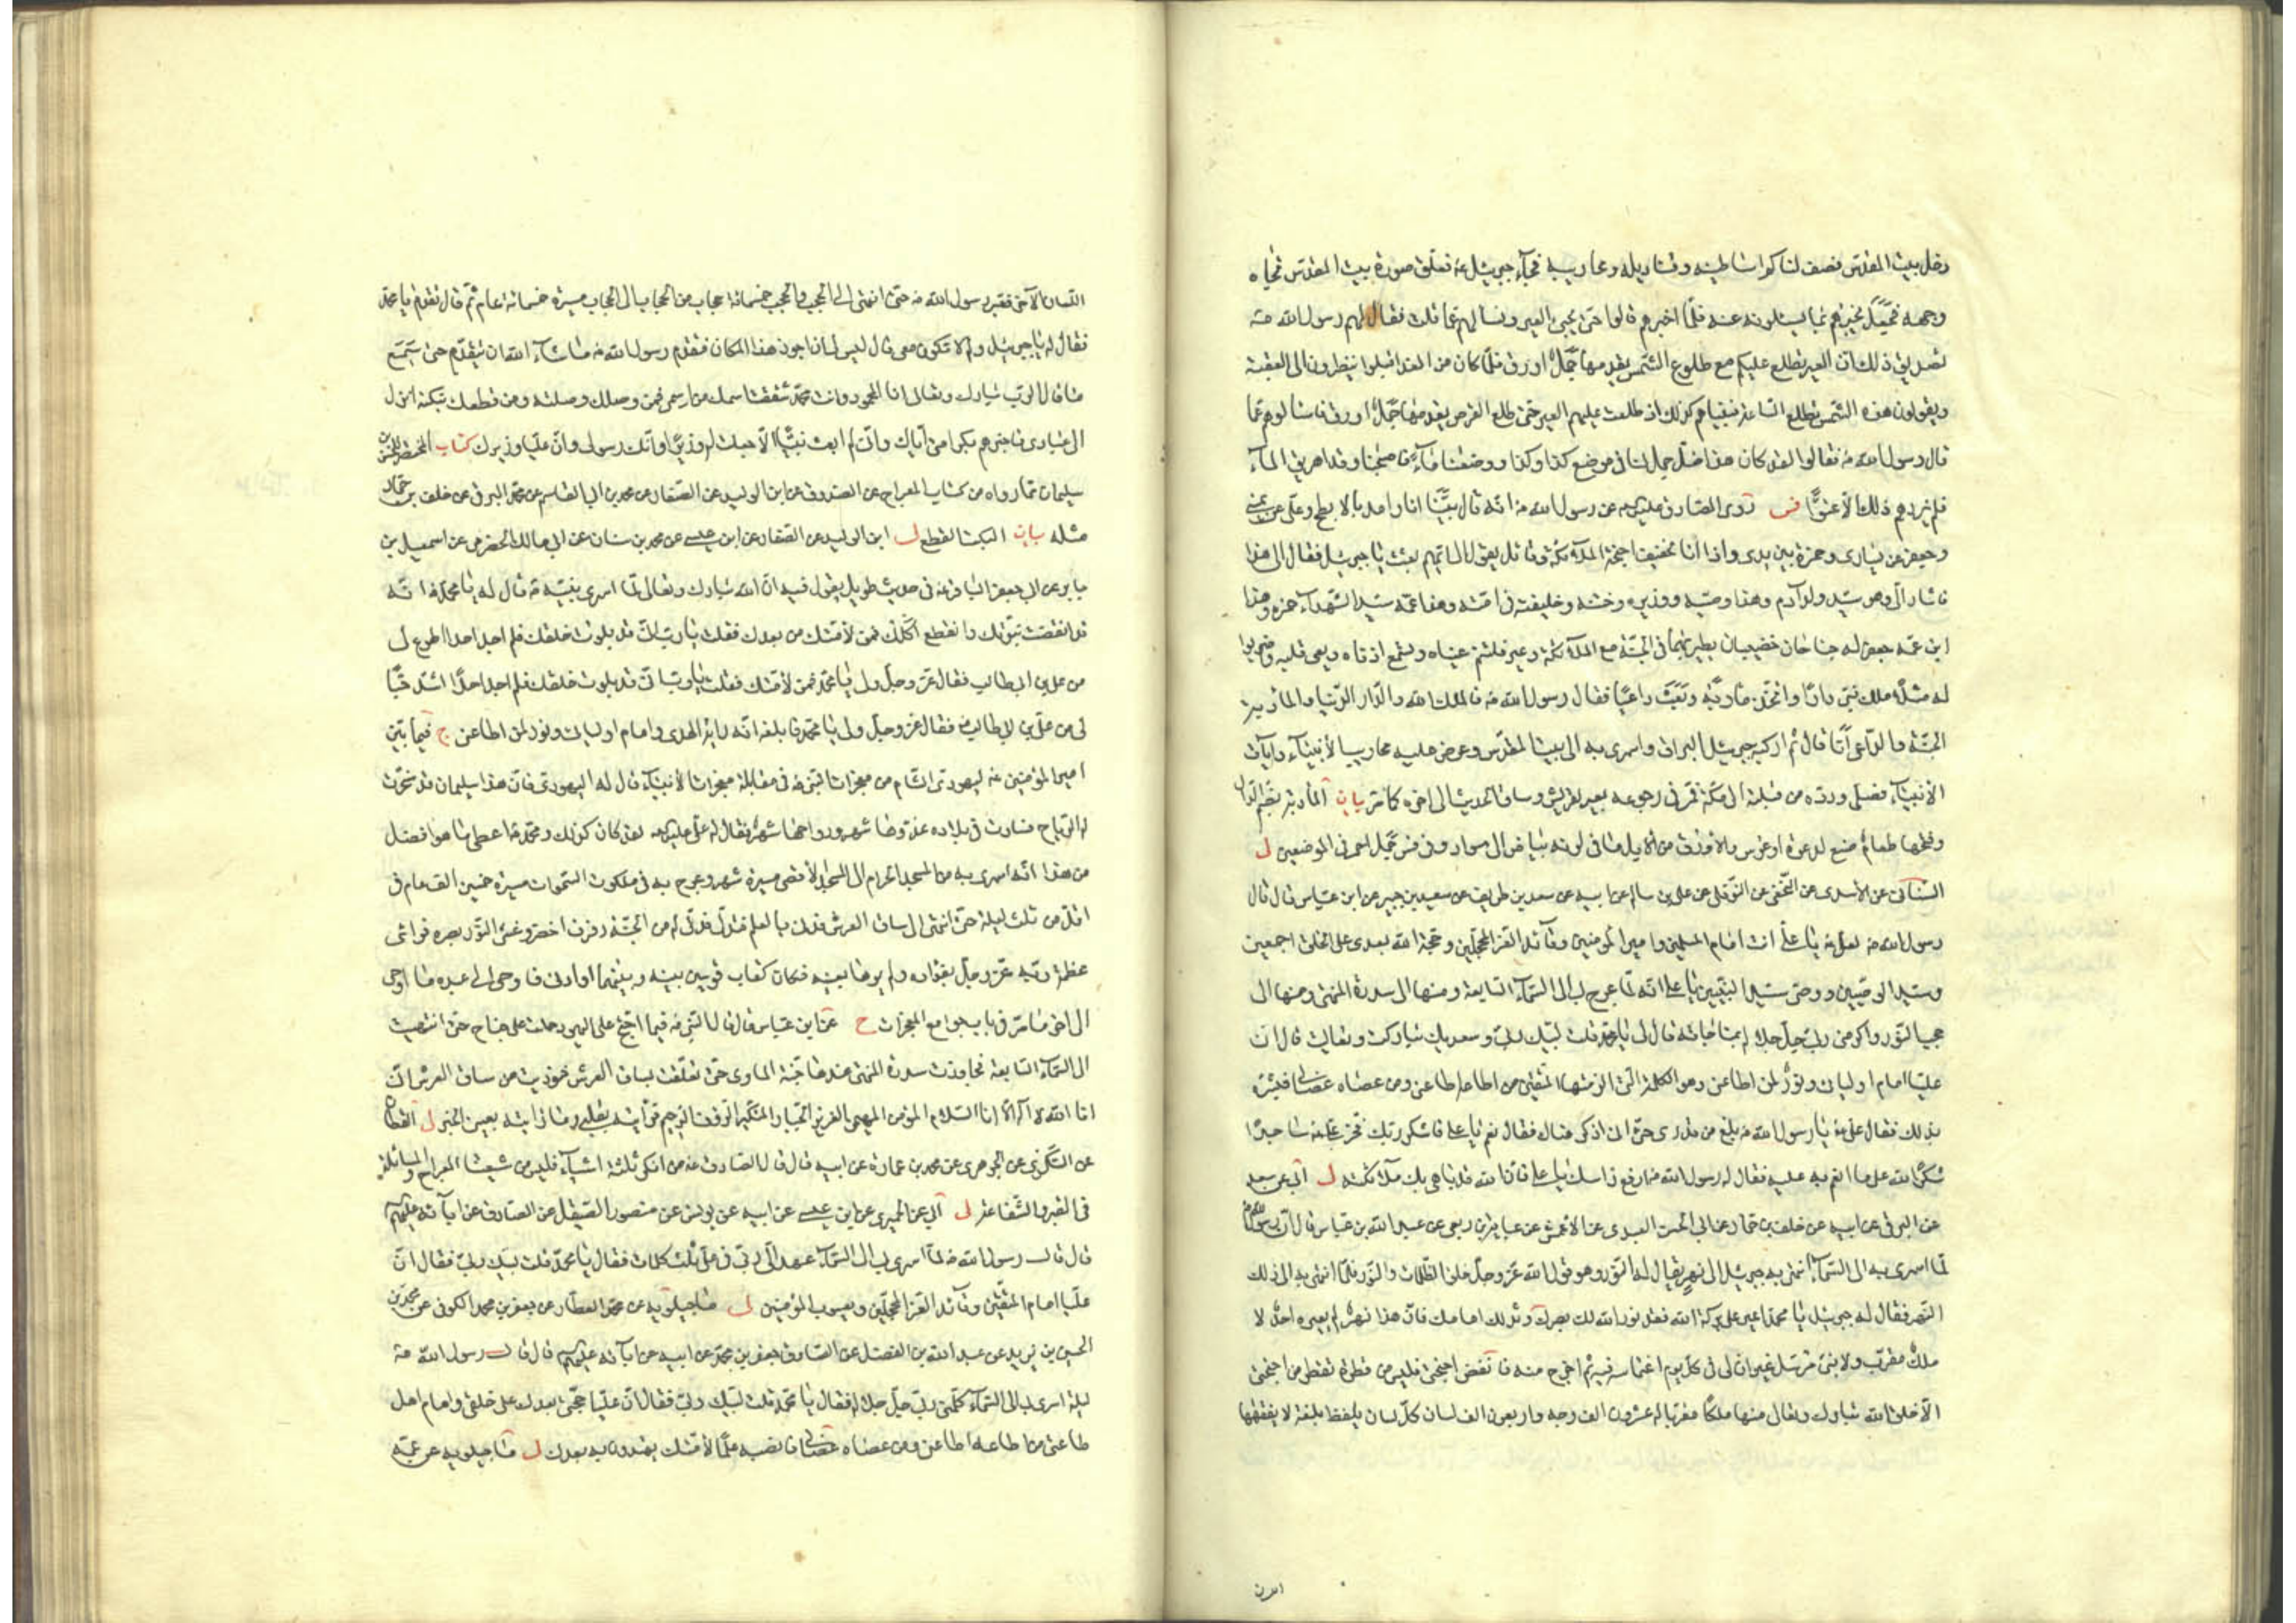 دخل بيت المقدس فصف لنا كم اساطينه وقناديله ومحاريبه فجآء جبرئيل ع فعلق صورة بيت المقدس تجاه
وجهه فجعل يخبرهم بما يسئلونه عنه فلمّا اخبرهم قالوا حتى تجئ العير ونسالهم عمّا قلت فقال لهم رسول الله ص
تصديق ذلك ان العير تطلع عليكم مع طلوع الشمس يقدمها جمل اورق فلمّا كان من الغد اقبلوا ينظرون الى العقبة
ويقولون هذه الشمس تطلع الساعة فبينا هم كذلك اذ طلعت عليهم العير حتى طلع القرص يقدمها جمل اورق فسالوهم عمّا
قال رسول الله ص فقالوا لقد كان هذا ضل جمل لنا في موضع كذا وكذا ووضعنا مآء فاصبحنا وقد اهريق المآء
فلم يزدهم ذلك الا عتوّا فس روى الصادق عليه السلم عن رسول الله ص انه قال بينا انا راقد بالابطح وعلى عن يميني
وجعفر عن يساري وحمزة بين يدي واذا انا بخفيق اجنحة الملآئكة وقائل يقول الى ايهم بعثت يا جبرئيل فقال الى هذا
فاشار الىّ وهو سيد ولد آدم وهذا وصيه ووزيره وختنه وخليفته في امته وهذا عمه سيد الشهدآء حمزه وهذا
ابن عمه جعفر له جناحان خضيبان يطير بهما في الجنة مع الملآئكة دعه فلتنم عيناه ولتسمع اذناه ويعى قلبه واضربوا
له مثلا ملك بنى دارا واتخذ مادبة وبعث داعيا فقال رسول الله ص فالملك الله والدار الدنيا والمادبة
الجنة والداعي انا قال ثم اركبه جبرئيل البراق واسرى به الى بيت المقدس وعرض عليه محاريب الانبيآء وايات
الانبيآء فصلى ورده من ليلته الى مكة فمر في رجوعه بعير لقريش وساق الحديث الى اخره كما مر بيان المأدبة بضم الدال
وفتحها طعام صنع لدعوة او عرس والاورق من الابل ما في لونه بياض الى سواد وفي فس جمل احمر في الموضعين لى
السناني عن الاسدي عن النخعي عن النوفلي عن علي بن سالم عن ابيه عن سعد بن طريف عن سعيد بن جبير عن ابن عباس قال قال
رسول الله ص لعلي ع يا علي انت امام المسلمين وامير المومنين وقآئد الغر المحجلين وحجة الله بعدي على الخلق اجمعين
وسيد الوصيين ووصى سيد النبيين يا علي انه لما عرج بي الى السمآء السابعة ومنها الى سدرة المنتهى ومنها الى
حجب النور واكرمني ربي جل جلاله بمناجاته قال لي يا محمد قلت لبيك ربي وسعديك تباركت وتعاليت قال ان
عليا امام اوليائي ونور لمن اطاعني وهو الكلمة التي الزمتها المتقين من اطاعه اطاعني ومن عصاه عصاني فبشره
بذلك فقال علي ع يا رسول الله ص بلغ من قدري حتى اني اذكر هناك فقال نعم يا علي فاشكر ربك فخر علي ع ساجدا
شكرا لله على ما انعم به عليه فقال له رسول الله ص ارفع راسك يا علي فان الله قد باهى بك ملآئكته لى ابي عن سعد
عن البرقي عن ابيه عن خلف بن حماد عن ابي الحسن العبدي عن الاعمش عن عباية بن ربعي عن عبد الله بن عباس قال ان رسول الله ص
لمّا اسرى به الى السمآء انتهى به جبرئيل الى نهر يقال له النور وهو قول الله عز وجل خلق الظلمات والنور فلمّا انتهى به الى ذلك
النهر فقال له جبرئيل يا محمد اعبر على بركة الله فقد نور الله لك بصرك ومد لك امامك فان هذا نهر لم يعبره احد لا
ملك مقرب ولا نبي مرسل غير ان لي في كل يوم اغتماسة فيه ثم اخرج منه فانفض اجنحتي فليس من قطرة تقطر من اجنحتي
الا خلق الله تبارك وتعالى منها ملكا مقربا له عشرون الف وجه واربعون الف لسان كل لسان يلفظ بلغة لا يفقهها
اللسان الآخر فعبر رسول الله ص حتى انتهى الى الحجب والحجب خمسمائة حجاب من الحجاب الى الحجاب مسيرة خمسمائة عام ثم قال تقدم يا محمد
فقال له يا جبرئيل ولم لا تكون معي قال ليس لي ان اجوز هذا المكان فتقدم رسول الله ص ما شآء الله ان يتقدم حتى سمع
ما قال الرب تبارك وتعالى انا المحمود وانت محمد شققت اسمك من اسمي فمن وصلك وصلته ومن قطعك بتكته انزل
الى عبادي فاخبرهم بكرامتي اياك واني لم ابعث نبيّا الا جعلت له وزيرا وانك رسولي وان عليّا وزيرك كتاب المحتضر للحسن بن
سليمان ممّا رواه من كتاب المعراج عن الصدوق عن ابن الوليد عن الصفار عن محمد بن ابي القاسم عن محمد البرقي عن خلف بن حماد
مثله بيان البتك القطع لى ابن الوليد عن الصفار عن ابن عيسى عن محمد بن سنان عن ابي مالك الحضرمي عن اسمعيل بن
جابر عن ابي جعفر الباقر ع في حديث طويل يقول فيه ان الله تبارك وتعالى لما اسرى بنبيه ص قال له يا محمد ص انه
قد انقضت نبوتك وانقطع اكلك فمن لامتك من بعدك فقلت يا رب اني قد بلوت خلقك فلم اجد احدا اطوع لى
من علي بن ابي طالب فقال عز وجل ولي يا محمد فمن لامتك فقلت يا رب اني قد بلوت خلقك فلم اجد احدا اشد حبّا
لى من علي بن ابي طالب ع فقال عز وجل ولي يا محمد فابلغه انه راية الهدى وامام اوليائي ونور لمن اطاعني ج فيما بين
امير المؤمنين ع ليهودي الشام من معجزات النبي ص في مقابلة معجزات الانبيآء قال له اليهودي فان هذا سليمان قد سخرت
له الرياح فسارت في بلاده غدوها شهر ورواحها شهر فقال له علي عليه السلم لقد كان كذلك ومحمد ص اعطى ما هو افضل
من هذا انه اسرى به من المسجد الحرام الى المسجد الاقصى مسيرة شهر وعرج به في ملكوت السموات مسيرة خمسين الف عام في
اقل من ثلث ليلة حتى انتهى الى ساق العرش فدنى بالعلم فتدلى فدلى له من الجنة رفرف اخضر وغشى النور بصره فراى
عظمة ربه عز وجل بفؤاده ولم يرها بعينه فكان كقاب قوسين بينه وبينهما او ادنى فاوحى الى عبده ما اوحى
الى اخر ما مر في باب جوامع المعجزات ج عن ابن عباس قال قال النبي ص فيما احتج على اليهود حملت على جناح حتى انتهيت
الى السمآء السابعة فجاوزت سدرة المنتهى عندها جنة الماوى حتى تعلقت بساق العرش فنوديت من ساق العرش انّي
انا الله لا اله الا انا السلام المؤمن المهيمن العزيز الجبار المتكبر الروف الرحيم فرأيته بقلبي وما رايته بعيني الخبر لى القطان
عن السكري عن الجوهري عن محمد بن عمارة عن ابيه قال قال الصادق ع من انكر ثلثة اشيآء فليس من شيعتنا المعراج والمسائلة
في القبر والشفاعة لى ابي عن الحميري عن ابن عيسى عن ابيه عن يونس عن منصور الصيقل عن الصادق عن ابآئه عليهم
قال قال رسول الله ص لمّا اسرى بي الى السمآء عهد الىّ ربي في علي ثلث كلمات فقال يا محمد قلت لبيك ربي فقال ان
عليّا امام المتقين وقآئد الغر المحجلين ويعسوب المؤمنين لى ماجيلويه عن محمد العطار عن جعفر بن محمد الكوفي عن محمد بن
الحسين بن زيد عن عبد الله بن الفضل عن الصادق جعفر بن محمد عن ابيه عن ابآئه عليهم قال قال رسول الله ص
ليلة اسرى بي الى السمآء كلمني ربي جل جلاله فقال يا محمد قلت لبيك ربي فقال ان عليّا حجتي بعدك على خلقي وامام اهل
طاعتي من اطاعه اطاعني ومن عصاه عصاني فانصبه علمّا لامتك يهتدون به بعدك لى ماجيلويه عن عمه